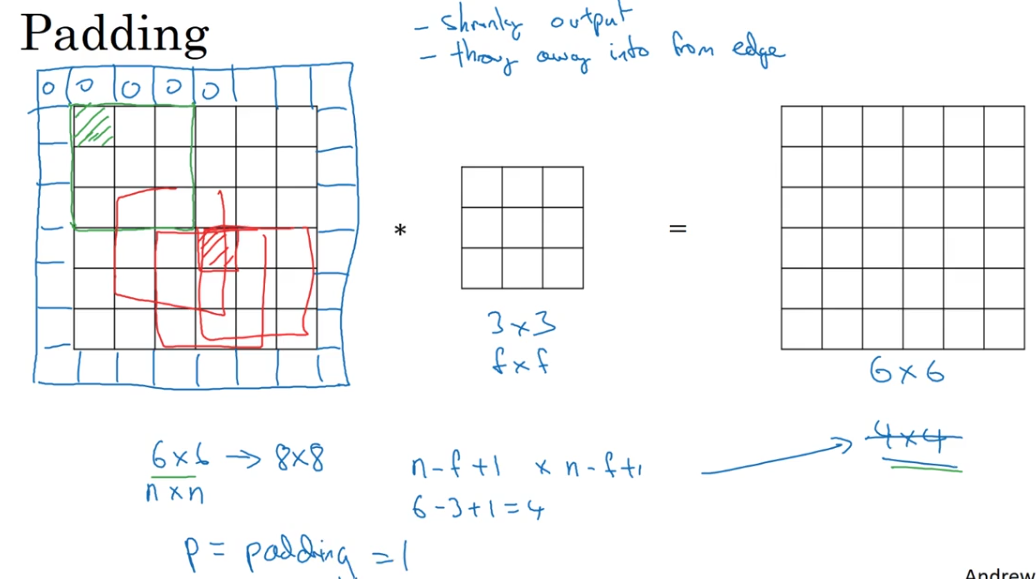 Padding
- shrinky output
- throw away info from edge
0 0 0 0 0
*
=
3 x 3
f x f
6 x 6
6 x 6 → 8 x 8
n x n
n - f + 1 x n - f + 1
4 x 4
6 - 3 + 1 = 4
p = padding = 1
Andrew